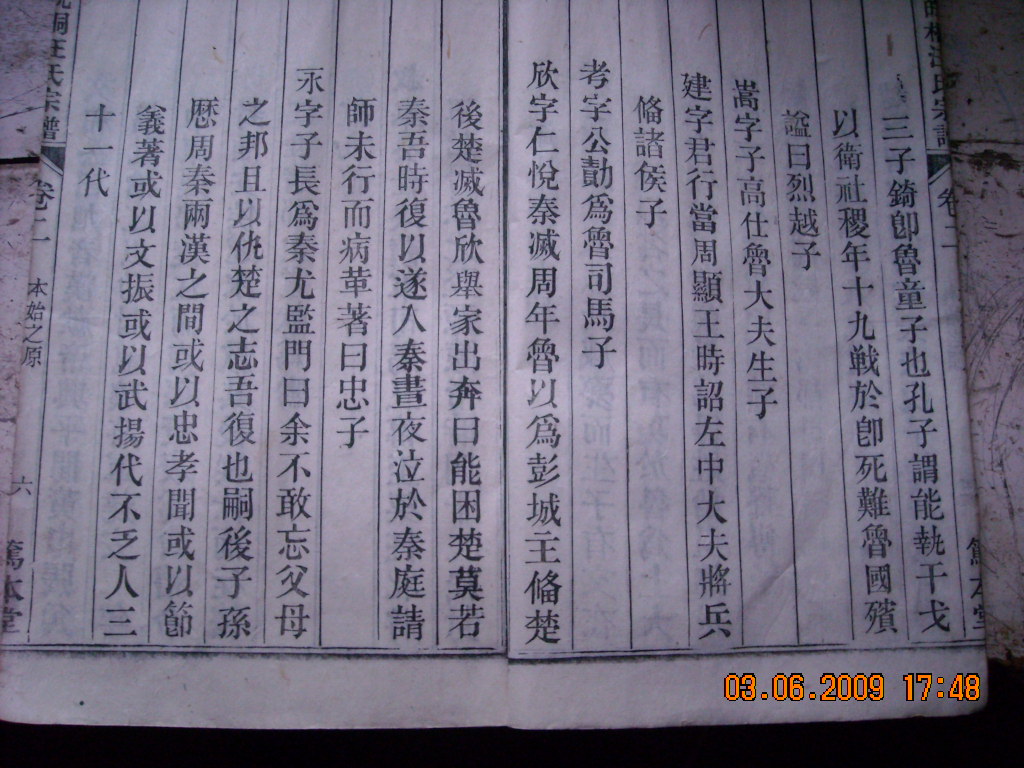 三子錡卽魯童子也孔子謂能執干戈
以衛社稷年十九戰於卽死難魯國殯
諡曰烈越子
嵩字子高仕魯大夫生子
建字君行當周顯王時詔左中大夫將兵
俻諸侯子
考字公勣爲魯司馬子
欣字仁悅秦滅周年魯以爲彭城主俻楚
後楚滅魯欣與家出奔曰能困楚莫若
秦吾時復以遂入秦晝夜泣於秦庭請
師未行而病革著曰忠子
永字子長爲秦尤監門曰余不敢忘父母
之邦且以仇楚之志吾復也嗣後子孫
歷周秦兩漢之間或以忠孝聞或以節
義著或以文振或以武揚代不乏人三
十一代
氏宗譜
卷二
篤本堂
桐汪氏宗譜
卷二
本始之原
六
篤本堂
03.06.2009 17:48